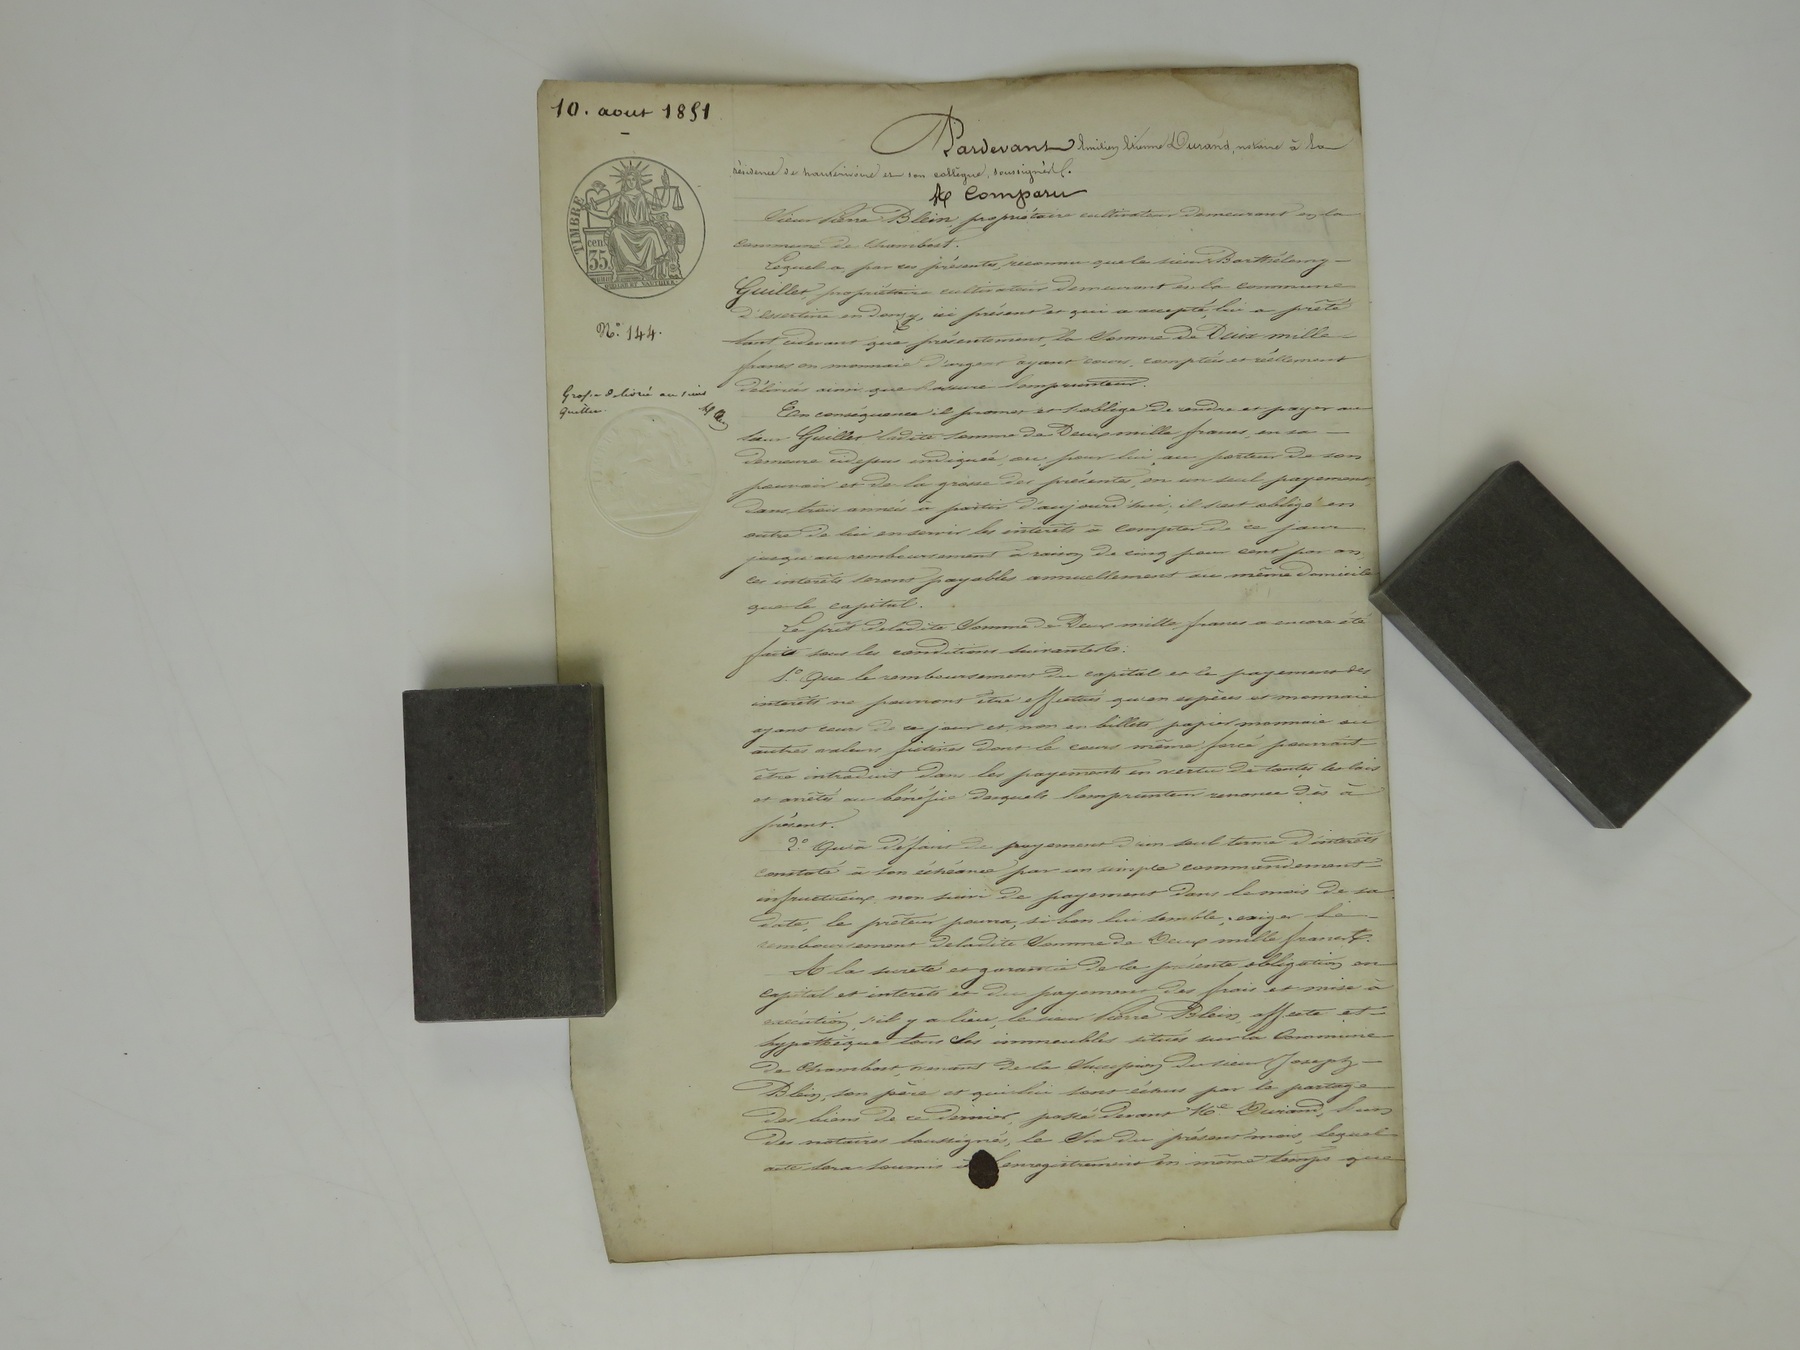 10. aout 1851
TIMBRE
cen.
35
N.° 144.
Grosse délivrée au sieur
Guillet.
Pardevant Emilien Etienne Durand, notaire à la
résidence de hauterivoire et son collègue, soussignés.
A Comparu
Sieur Pierre Blein, propriétaire cultivateur demeurant en la
commune de Chambost.
Lequel a, par ces présentes, reconnu que le sieur Barthélemy
Guillet, propriétaire cultivateur demeurant en la commune
d'essertine en donzy, ici présent et qui a accepté, lui a prêté
tant cidevant que présentement, la Somme de Deux mille
francs en monnaie d'argent ayant cours, comptés et réellement
délivrés ainsi que l'assure l'emprunteur.
En conséquence il promet et s'oblige de rendre et payer au
sieur Guillet ladite somme de Deux mille francs, en sa
demeure cidessus indiquée, ou, pour lui, au porteur de son
pouvoir et de la grosse des présentes, en un seul payement,
dans trois années à partir d'aujourd'hui, il s'est obligé en
outre de lui en servir les intérêts à compter de ce jour
jusqu'au remboursement à raison de cinq pour cent par an,
ces intérêts seront payables annuellement au même domicile
que le capital.
Le prêt deladite Somme de Deux mille francs a encore été
fait sous les conditions suivantes:
1.° Que le remboursement du capital et le payement des
intérêts ne pourront être effectués qu'en espèces et monnaie
ayant cours de ce jour et non en billets, papier monnaie ou
autres valeurs fictives dont le cours même forcé pourrait
être introduit dans les payements en vertu de toutes les lois
et arrêtés au bénéfice desquels l'emprunteur renonce dès à
présent.
2.° Qu'à défaut de payement d'un seul terme d'intérêts
constaté à son échéance par un simple commandement
infructueux, non suivi de payement dans le mois de sa
date, le prêteur pourra, si bon lui semble, exiger le
remboursement deladite Somme de Deux mille francs.
A la sureté et garantie de la présente obligation en
capital et intérêts et du payement des frais et mise à
exécution, s'il y a lieu, le sieur Pierre Blein, affecte et
hypothèque tous les immeubles situés sur la Commune
de Chambost, venant de la Succession du sieur Joseph
Blein, son père et qui lui sont échus par le partage
des biens de ce dernier, passé devant Me Durand, l'un
des notaires soussignés, le Six du présent mois, lequel
acte sera soumis à l'enregistrement en même temps que